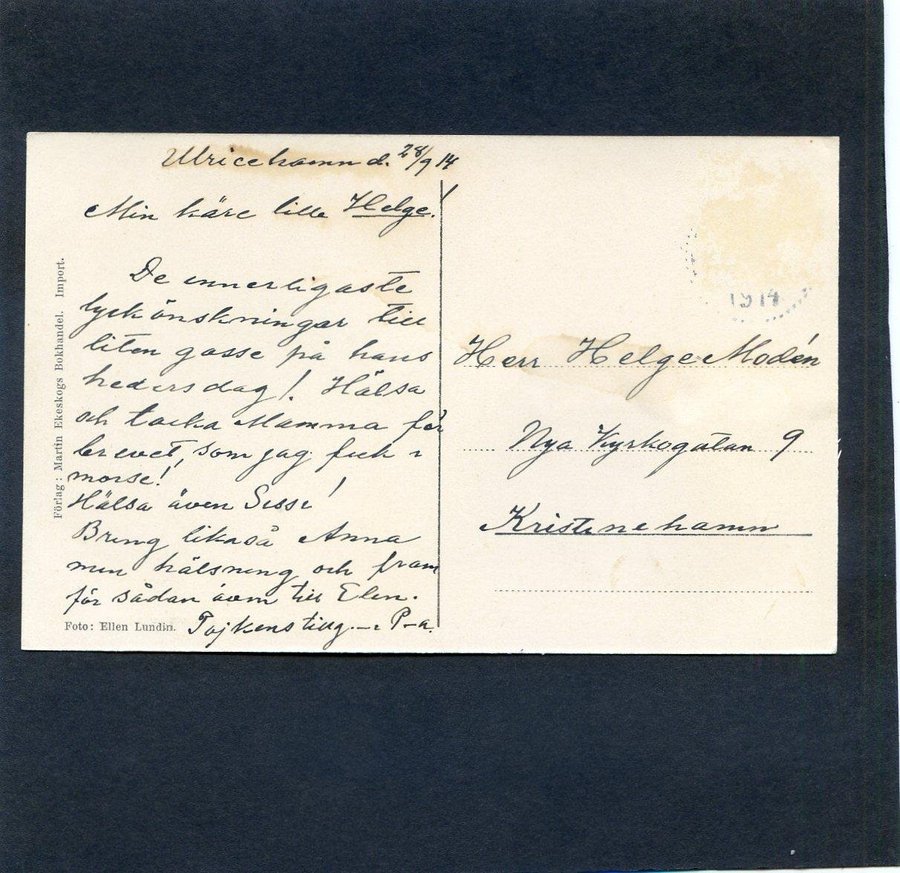 Ulricehamn d. 28/9 14
Min käre lille Helge!
De innerligaste
lyckönskningar till
liten gosse på hans
hedersdag! Hälsa
och tacka Mamma för
brevet, som jag fick i
morse!
Hälsa även Sissi!
Bring likaså Anna
min hälsning och fram
för sådan även till Elen.
P-a.
Förlag: Martin Ekeskogs Bokhandel. Import.
Foto: Ellen Lundin.
1914
Herr Helge Modén
Nya Kyrkogatan 9
Kristinehamn